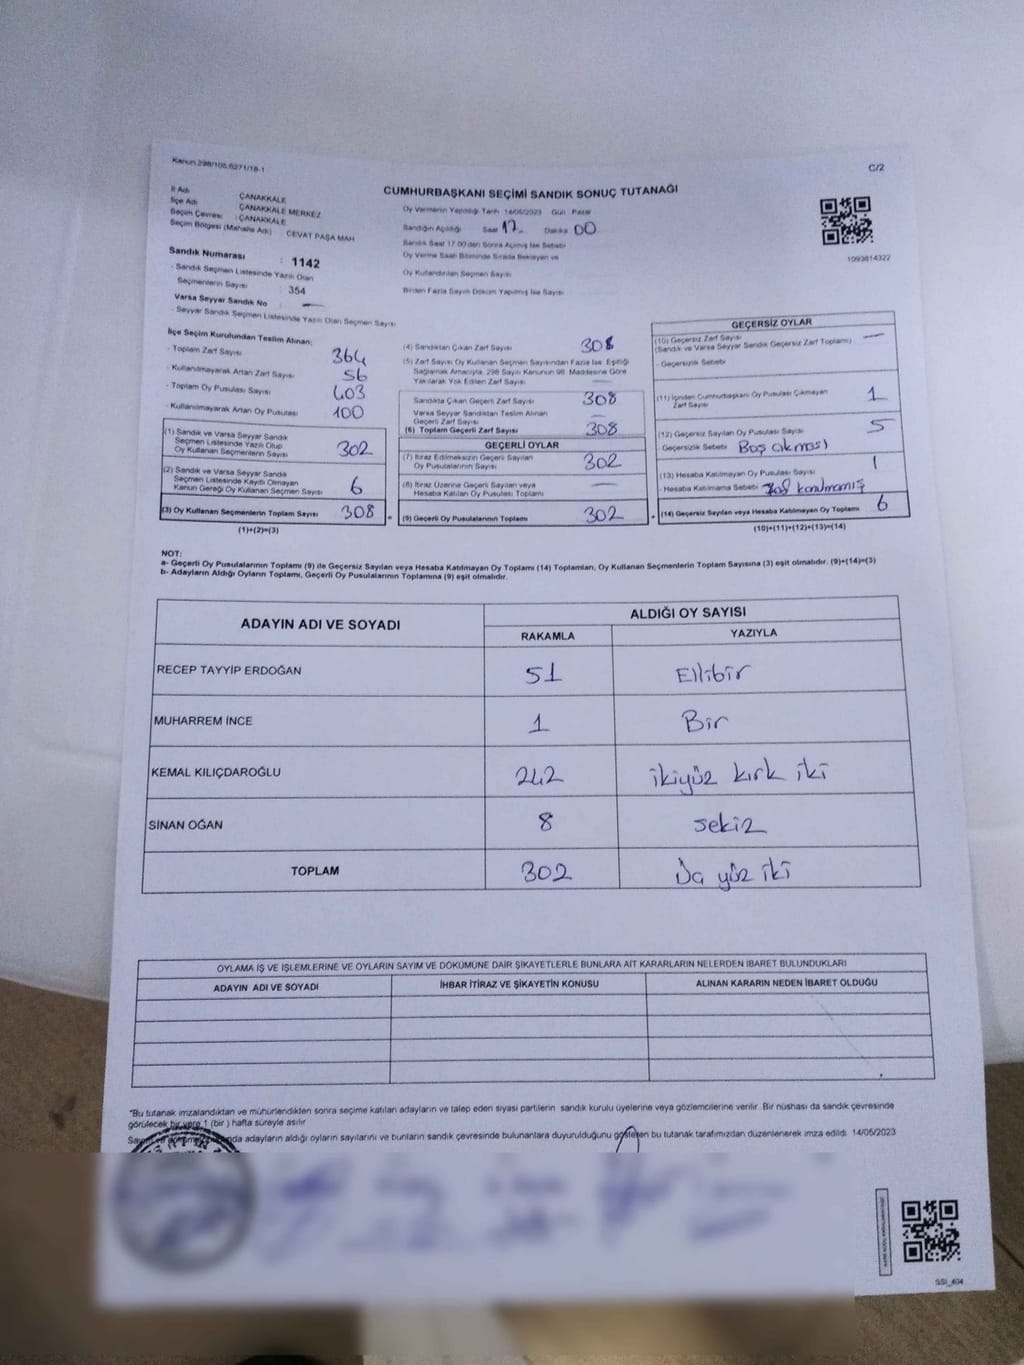 Kanun 298/105,6271/18-1
C/2
CUMHURBAŞKANI SEÇİMİ SANDIK SONUÇ TUTANAĞI
İl Adı ÇANAKKALE
İlçe Adı ÇANAKKALE MERKEZ
Seçim Çevresi : ÇANAKKALE
Seçim Bölgesi (Mahalle Adı) CEVAT PAŞA MAH
Sandık Numarası : 1142
- Sandık Seçmen Listesinde Yazılı Olan
Seçmenlerin Sayısı : 354
Varsa Seyyar Sandık No : —
- Seyyar Sandık Seçmen Listesinde Yazılı Olan Seçmen Sayısı
Oy Vermenin Yapıldığı Tarih : 14/05/2023 Gün : Pazar
Sandığın Açıldığı Saat 17. Dakika 00
Sandık Saat 17.00'den Sonra Açılmış İse Sebebi
Oy Verme Saati Bitiminde Sırada Bekleyen ve
Oy Kullandırılan Seçmen Sayısı
Birden Fazla Sayım Döküm Yapılmış İse Sayısı
1093814322
İlçe Seçim Kurulundan Teslim Alınan:
- Toplam Zarf Sayısı 364
- Kullanılmayarak Artan Zarf Sayısı 56
- Toplam Oy Pusulası Sayısı 403
- Kullanılmayarak Artan Oy Pusulası 100
(1) Sandık ve Varsa Seyyar Sandık
Seçmen Listesinde Yazılı Olup
Oy Kullanan Seçmenlerin Sayısı 302
(2) Sandık ve Varsa Seyyar Sandık
Seçmen Listesinde Kayıtlı Olmayan
Kanun Gereği Oy Kullanan Seçmen Sayısı 6
(3) Oy Kullanan Seçmenlerin Toplam Sayısı 308
(1)+(2)=(3)
(4) Sandıktan Çıkan Zarf Sayısı 308
(5) Zarf Sayısı Oy Kullanan Seçmen Sayısından Fazla İse, Eşitliği
Sağlamak Amacıyla, 298 Sayılı Kanunun 98. Maddesine Göre
Yakılarak Yok Edilen Zarf Sayısı —
Sandıkta Çıkan Geçerli Zarf Sayısı 308
Varsa Seyyar Sandıktan Teslim Alınan
Geçerli Zarf Sayısı —
(6) Toplam Geçerli Zarf Sayısı 308
GEÇERLİ OYLAR
(7) İtiraz Edilmeksizin Geçerli Sayılan
Oy Pusulalarının Sayısı 302
(8) İtiraz Üzerine Geçerli Sayılan veya
Hesaba Katılan Oy Pusulası Toplamı —
(9) Geçerli Oy Pusulalarının Toplamı 302
GEÇERSİZ OYLAR
(10) Geçersiz Zarf Sayısı
(Sandık ve Varsa Seyyar Sandık Geçersiz Zarf Toplamı) —
- Geçersizlik Sebebi
(11) İçinden Cumhurbaşkanı Oy Pusulası Çıkmayan
Zarf Sayısı 1
(12) Geçersiz Sayılan Oy Pusulası Sayısı 5
- Geçersizlik Sebebi Boş çıkması
(13) Hesaba Katılmayan Oy Pusulası Sayısı 1
- Hesaba Katılmama Sebebi konulmamış
(14) Geçersiz Sayılan veya Hesaba Katılmayan Oy Toplamı 6
(10)+(11)+(12)+(13)=(14)
NOT:
a- Geçerli Oy Pusulalarının Toplamı (9) ile Geçersiz Sayılan veya Hesaba Katılmayan Oy Toplamı (14) Toplamları, Oy Kullanan Seçmenlerin Toplam Sayısına (3) eşit olmalıdır. (9)+(14)=(3)
b- Adayların Aldığı Oyların Toplamı, Geçerli Oy Pusulalarının Toplamına (9) eşit olmalıdır.
ADAYIN ADI VE SOYADI ALDIĞI OY SAYISI
RAKAMLA YAZIYLA
RECEP TAYYİP ERDOĞAN 51 Ellibir
MUHARREM İNCE 1 Bir
KEMAL KILIÇDAROĞLU 242 ikiyüz kırk iki
SİNAN OĞAN 8 sekiz
TOPLAM 302 yüz iki
OYLAMA İŞ VE İŞLEMLERİNE VE OYLARIN SAYIM VE DÖKÜMÜNE DAİR ŞİKAYETLERLE BUNLARA AİT KARARLARIN NELERDEN İBARET BULUNDUKLARI
ADAYIN ADI VE SOYADI İHBAR İTİRAZ VE ŞİKAYETİN KONUSU ALINAN KARARIN NEDEN İBARET OLDUĞU
"Bu tutanak imzalandıktan ve mühürlendikten sonra seçime katılan adayların ve talep eden siyasi partilerin sandık kurulu üyelerine veya gözlemcilerine verilir. Bir nüshası da sandık çevresinde
görülecek bir yere 1 (bir) hafta süreyle asılır
adayların aldığı oyların sayılarını ve bunların sandık çevresinde bulunanlara duyurulduğunu gösteren bu tutanak tarafımızdan düzenlenerek imza edildi. 14/05/2023
SSI_404